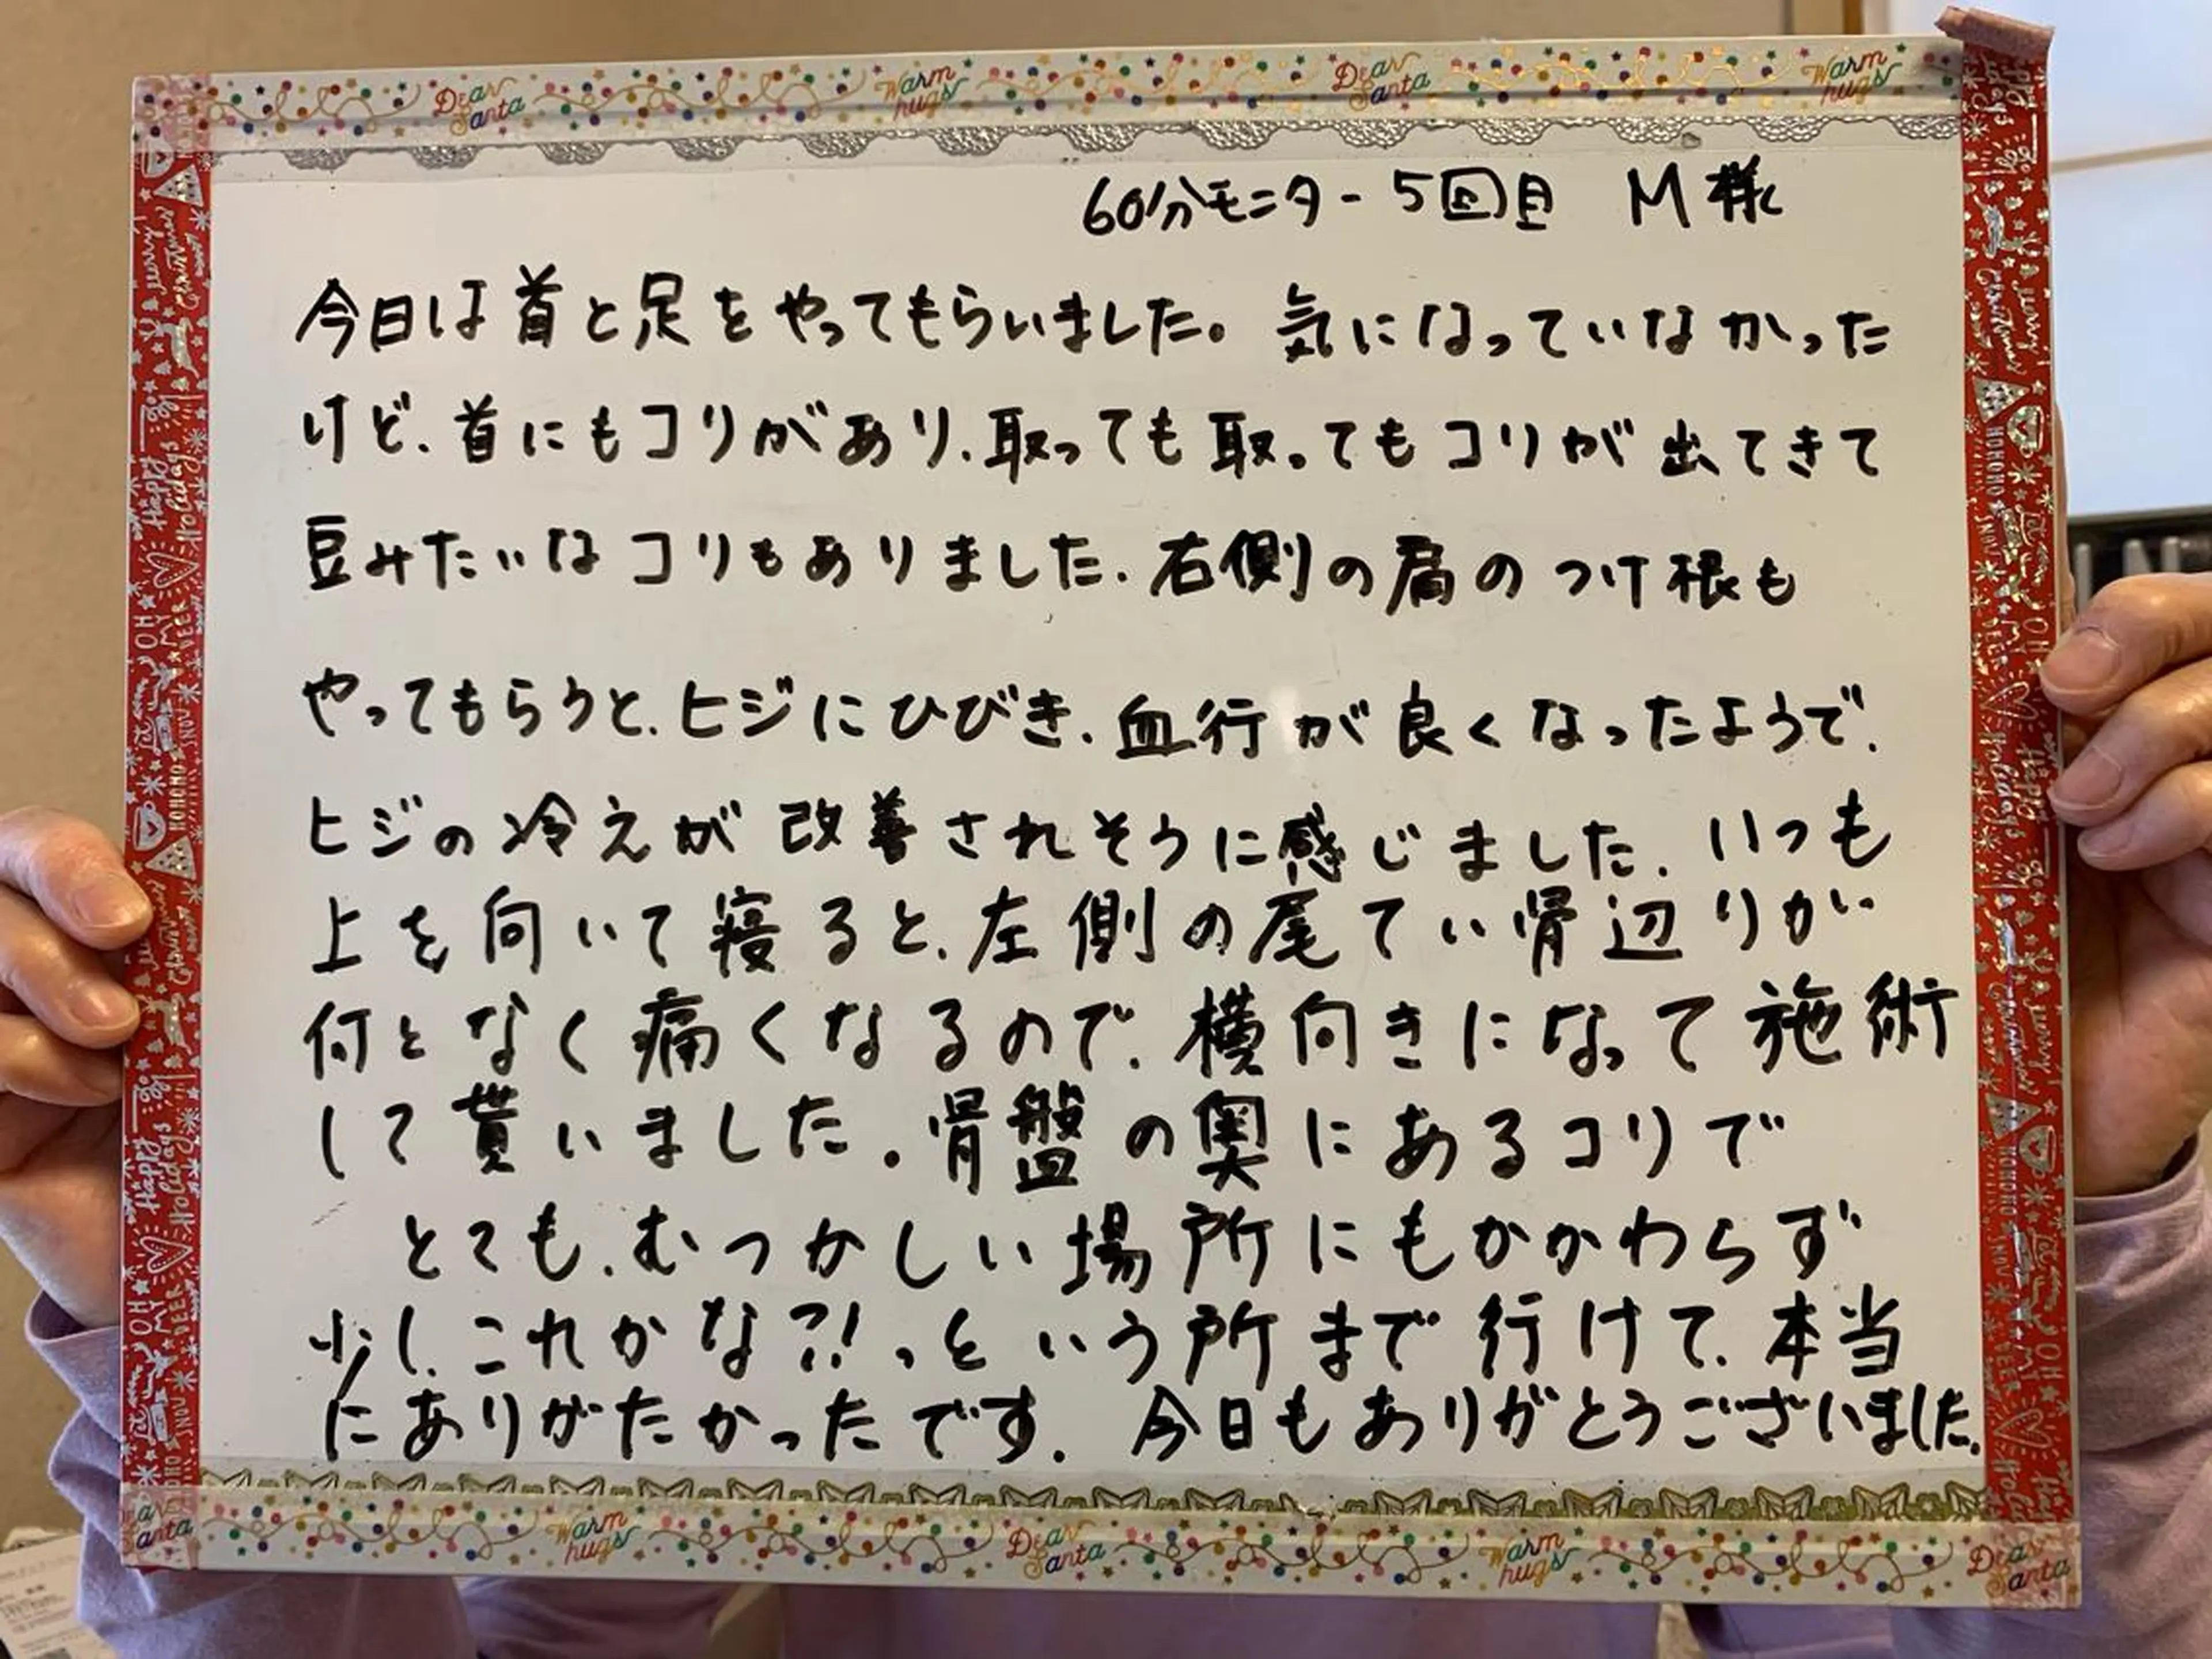 Dear Santa Warm hugs Dear Santa Warm hugs
60分モニター5回目 M様
今日は首と足をやってもらいました。気になっていなかった
けど、首にもコリがあり、取っても取ってもコリが出てきて
豆みたいなコリもありました。右側の肩のつけ根も
やってもらうと、ヒジにひびき、血行が良くなったようで、
ヒジの冷えが改善されそうに感じました。いつも
上を向いて寝ると、左側の尾てい骨辺りが
何となく痛くなるので、横向きになって施術
して貰いました。骨盤の奥にあるコリで
とても、むつかしい場所にもかかわらず
少し、これかな?!っという所まで行けて、本当
にありがたかったです。今日もありがとうございました。
Dear Santa Warm hugs Dear Santa Warm hugs Dear Santa